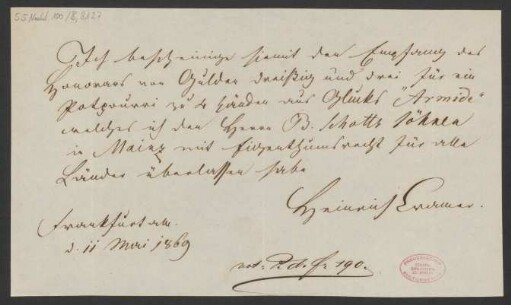 55 Nachl. 100 / B,
Ich bescheinige hiemit den Empfang des
Honorars von Gulden dreißig und drei für ein
Potpourri zu 4 Händen aus Glucks "Armide"
welches ich den Herrn B. Schotts Söhnen
in Mainz mit Eigenthumsrecht für alle
Länder überlassen habe
Heinrich Cramer.
Frankfurt a.m.
d. 11 Mai 1869
not. 190.